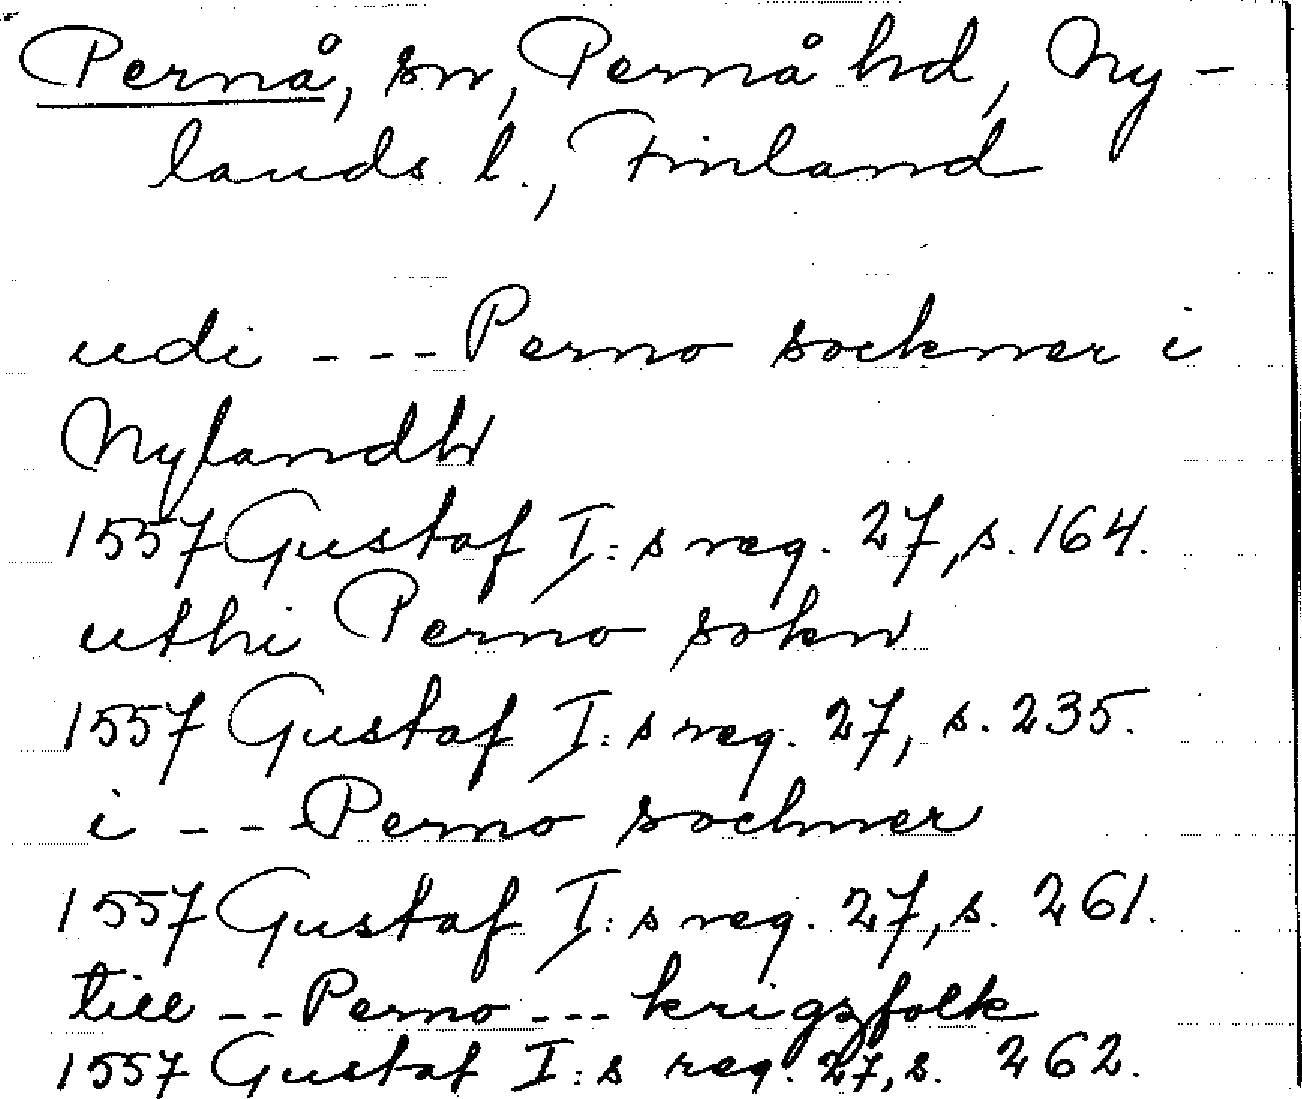 Pernå, sn, Pernå hd, Ny-
lands l., Finland
udi --- Perno socknner i
Nylandh
1557 Gustaf I:s reg. 27, s. 164.
uthi Perno sokn
1557 Gustaf I:s reg. 27, s. 235.
i --- Perno sochner
1557 Gustaf I:s reg. 27, s. 261.
till -- Perno --- krigzfolk
1557 Gustaf I:s reg. 27, s. 262.